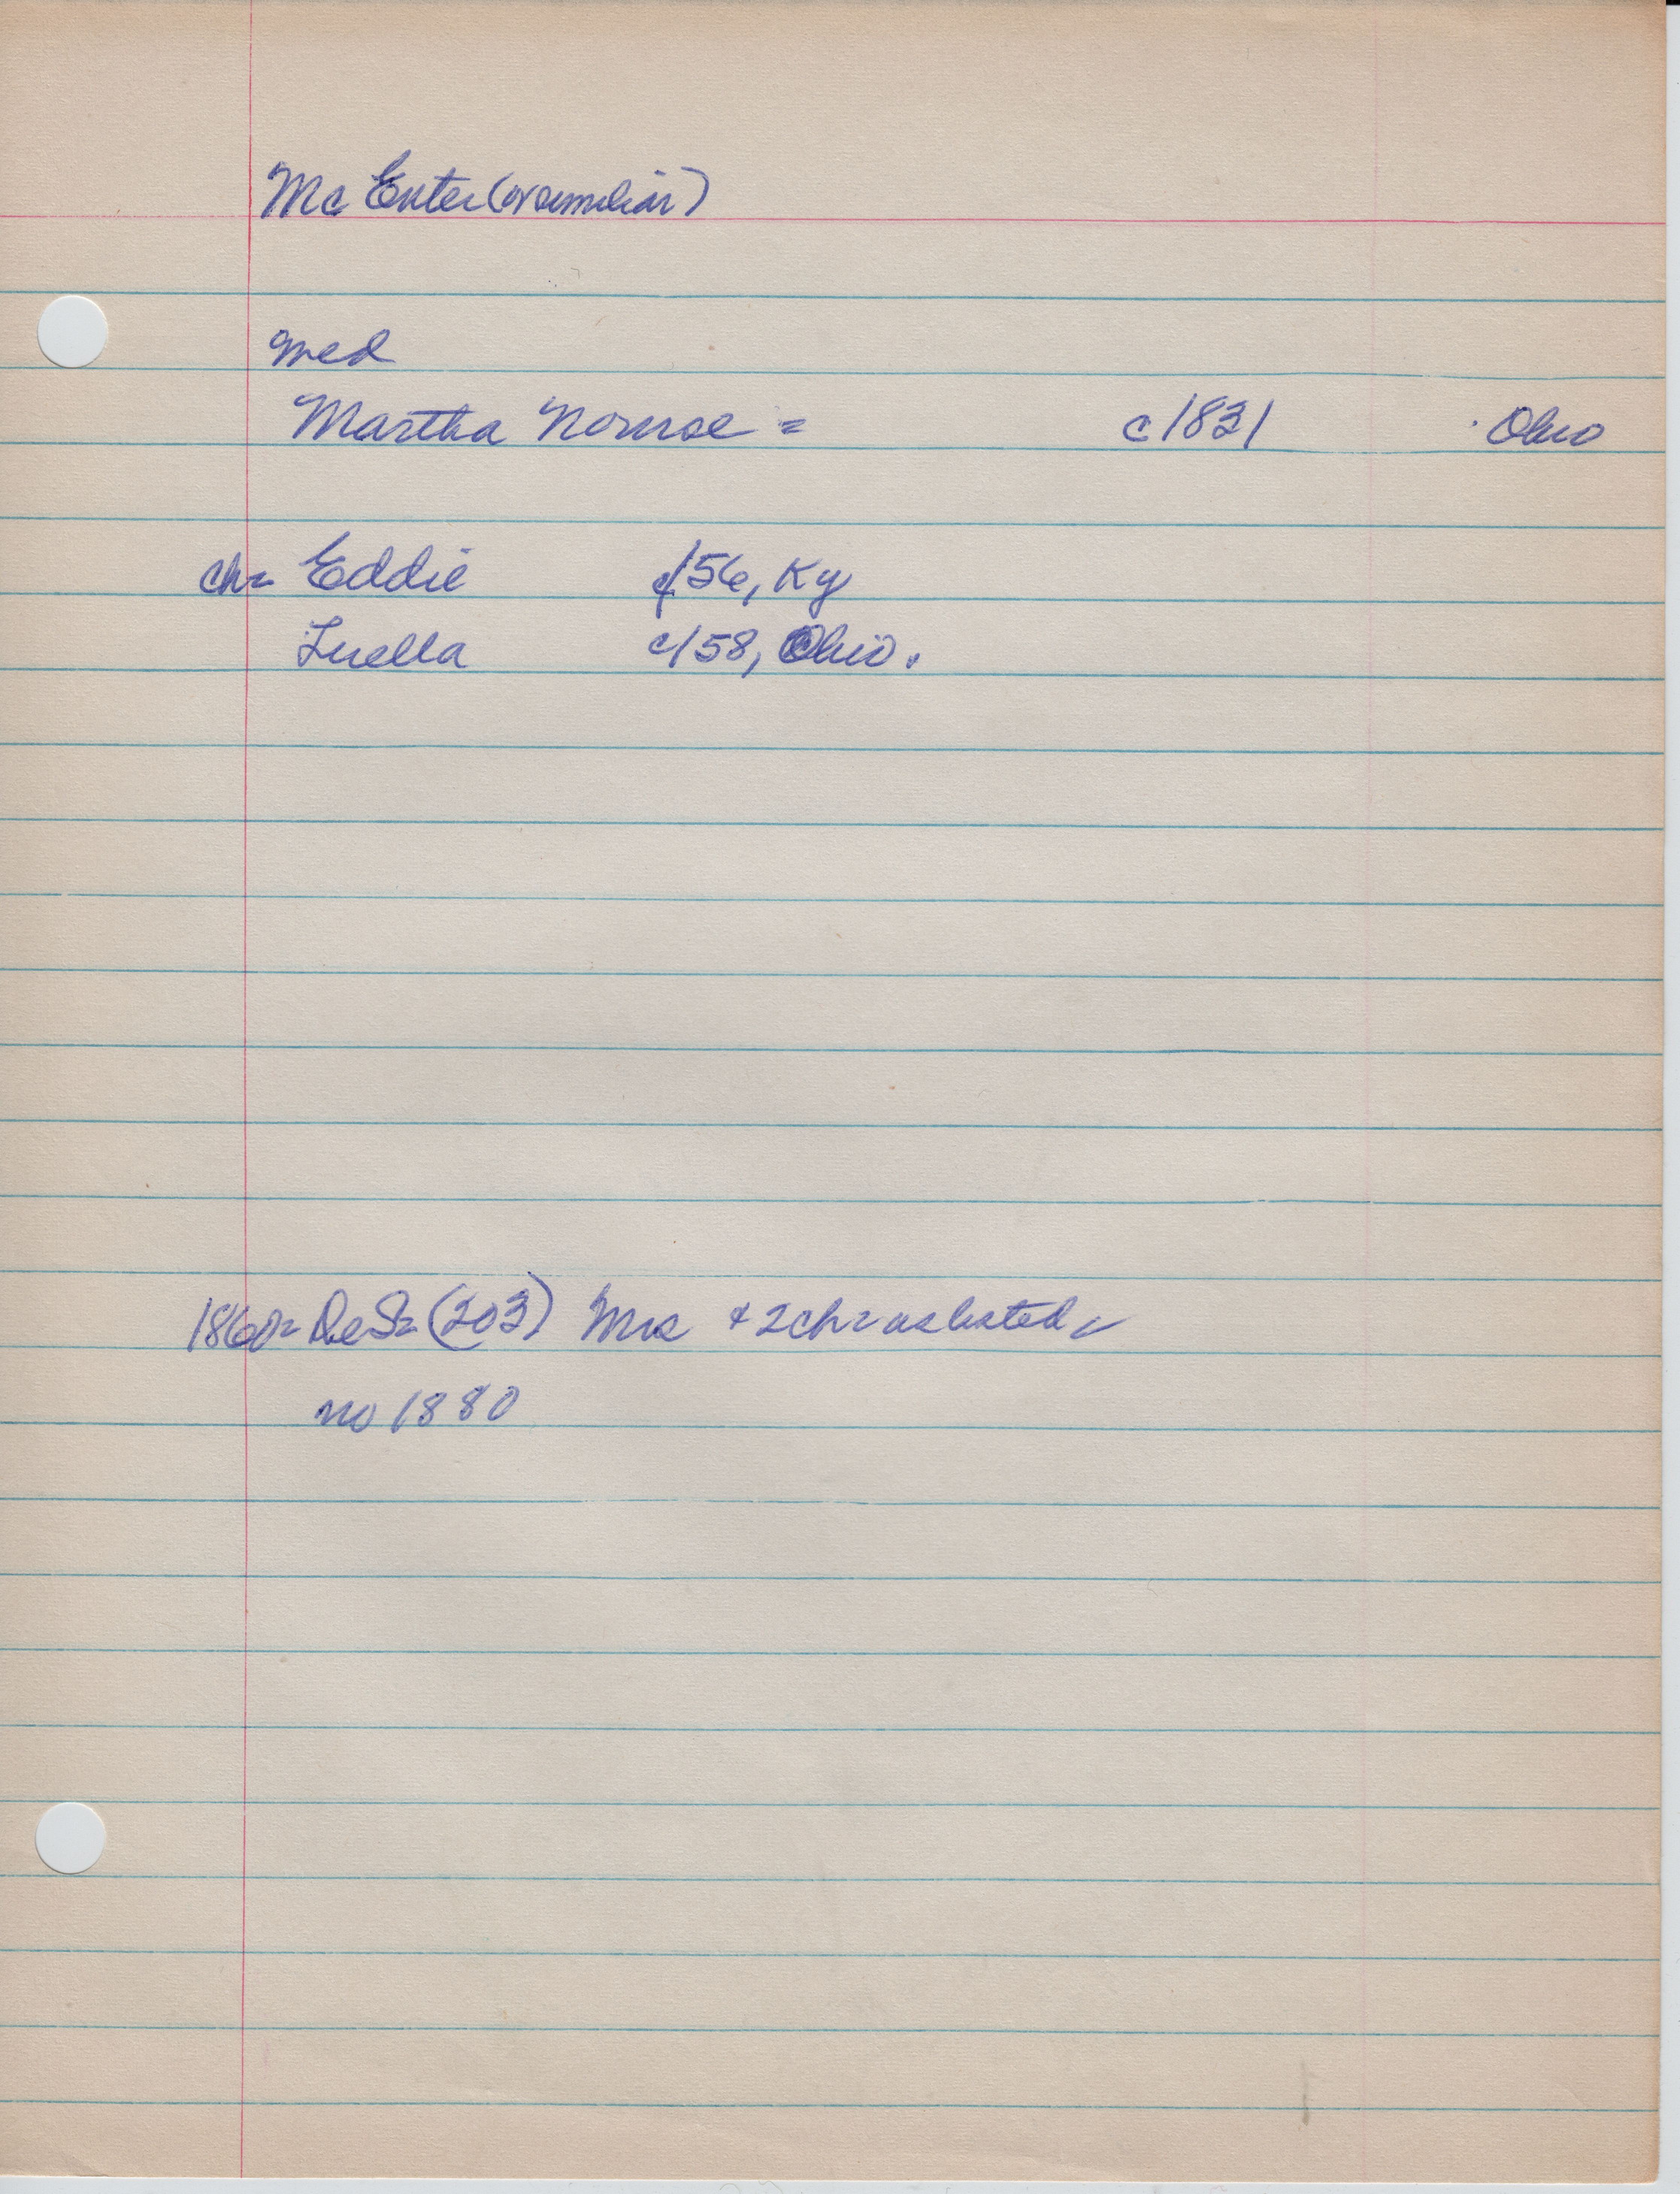 Mc Enter (or similiar)
med
Martha Nourse = c 1831 Ohio
ch= Eddie c/56, Ky
Luella c/58, Ohio.
1860= DeS= (203) Mrs + 2 ch= as listed
no 1880